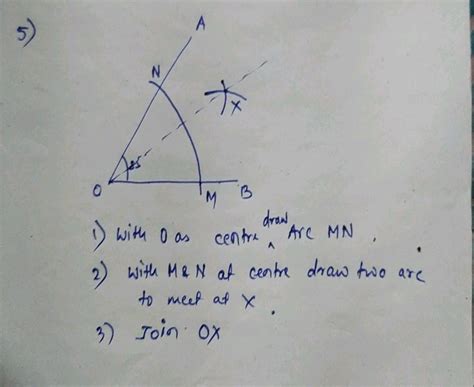 5)
A
N
X
25
O
M
B
1) With O as centre draw Arc MN.
2) With M & N at centre draw two arc
to meet at X.
3) Join OX